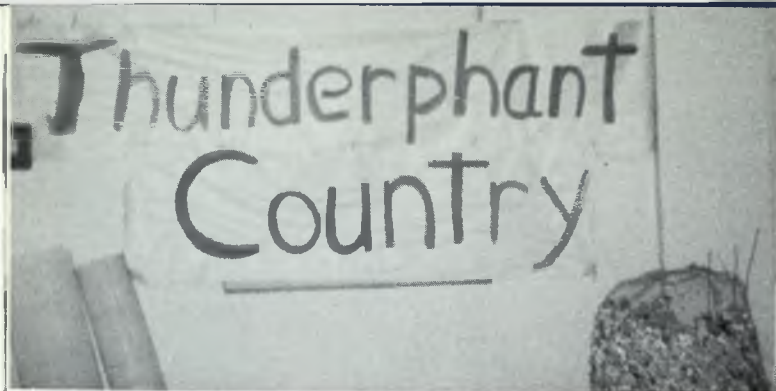 Thunderphant
Country